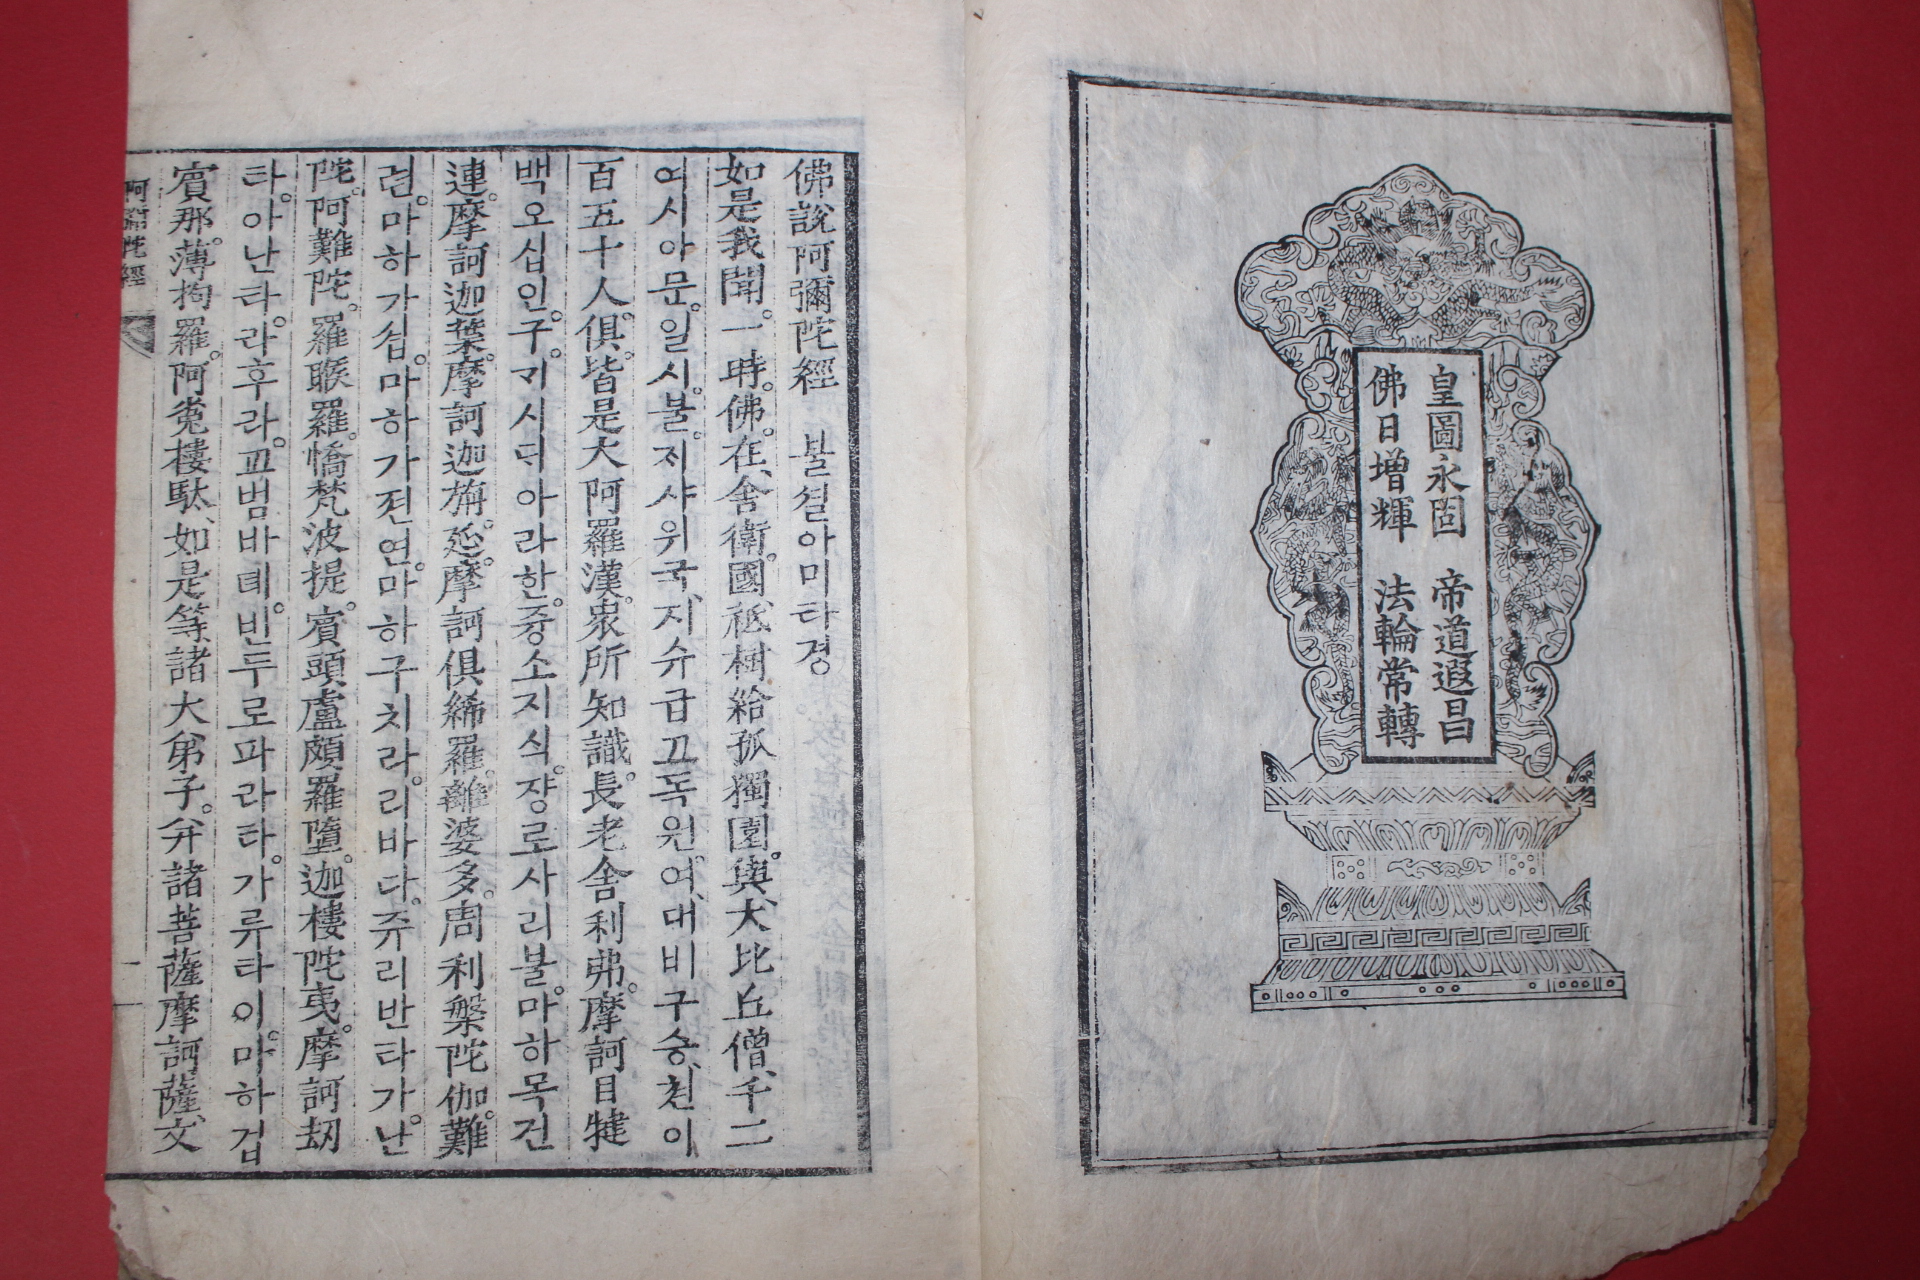 皇圖永固 帝道遐昌
佛日增輝 法輪常轉
佛說阿彌陀經 불셜아미타경
如是我聞。一時。佛。在、舍衛。國、祗樹給孤獨園。與、大比丘僧、千二
여시아문。일시。불。ᄌᆡ샤위국、지슈급고독원。여、대비구승、쳔이
百五十人。俱。皆是大阿羅漢。衆所知識。長老舍利弗。摩訶目犍
백오십인。구。ᄀᆡ시ᄃᆡ아라한。즁소지식。쟝로사리불。마하목건
連。摩訶迦葉。摩訶迦旃延。摩訶俱絺羅。離婆多。周利槃陀伽。難
련。마하가섭。마하가젼연。마하구치라。리바다。쥬리반타가。난
陀。阿難陀。羅睺羅。憍梵波提。賓頭盧頗羅墮。迦樓陀夷。摩訶劫
타。아난타。라후라。교범바톄。빈두로파라타。가류타이。마하겁
賓那。薄拘羅。阿㝹樓馱、如是等、諸大弟子。幷諸菩薩摩訶薩、文
阿彌陀經